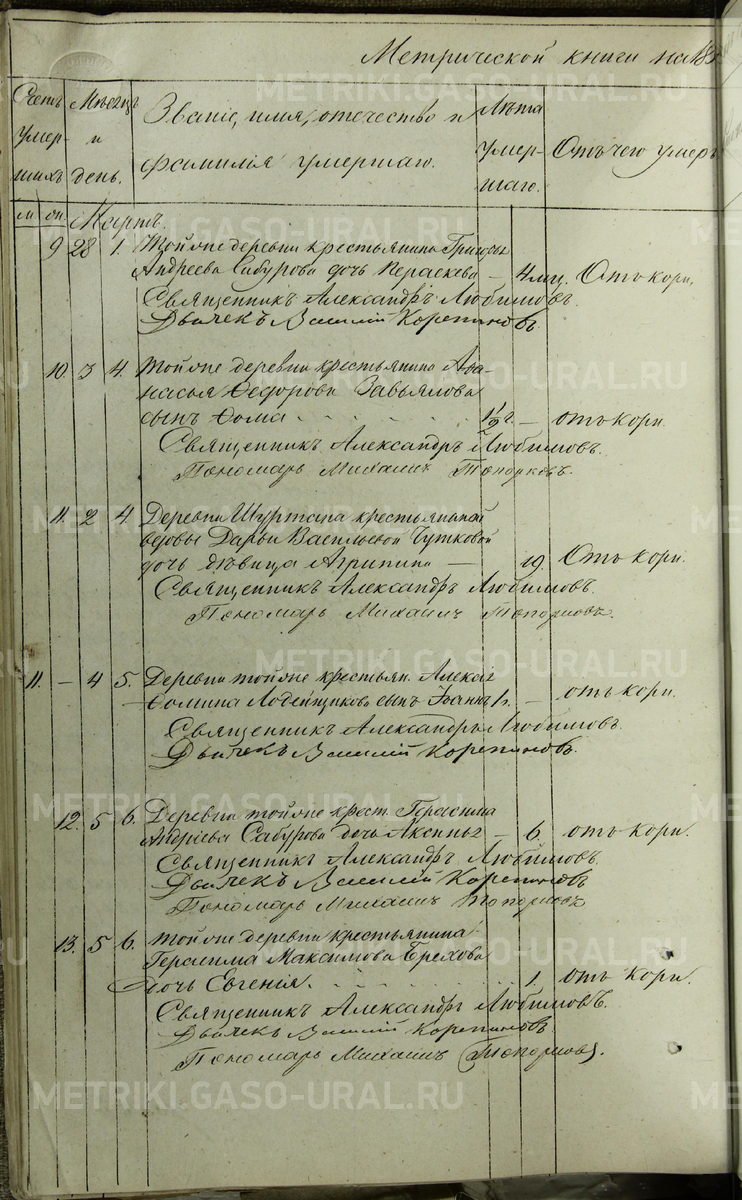 Метрической книги на 185
Счетъ умер-шихъ
Мѣсяцъ и день.
Званіе, имя, отечество и фамилія умершаго.
Лѣта умер-шаго.
Отъ чего умеръ
м. ж.
Мартъ.
9 28 1. Тойже деревни крестьянина Григорья
Андреева Сабурова дочь Параскева — 4 мц. Отъ кори.
Священникъ Александръ Любимовъ.
Дьячекъ Василій Корепановъ.
10. 3 4. Тойже деревни крестьянина Афа-
насья Ѳедорова Завьялова
сынъ Ѳома 1 1/2 г. — отъ кори.
Священникъ Александръ Любимовъ.
Пономарь Михаилъ Топорковъ.
11. 2 4. Деревни Шуртана крестьянской
вдовы Дарьи Васильевой Чутковой
дочь дѣвица Агрипина — 19. Отъ кори.
Священникъ Александръ Любимовъ.
Пономарь Михаилъ Топорковъ.
11. — 4 5. Деревни тойже крестьян. Алексія
Ѳомина Лодейщикова сынъ Іоаннъ — отъ кори.
Священникъ Александръ Любимовъ.
Дьячекъ Василій Корепановъ.
12. 5 6. Деревни тойже крест. Герасима
Андріева Сабурова дочь Аксинья — 6. отъ кори.
Священникъ Александръ Любимовъ.
Дьячекъ Василій Корепановъ
Пономарь Михаилъ Топорковъ
13. 5 6. Тойже деревни крестьянина
Герасима Максимова Брехова
дочь Евгенія. 1. отъ кори.
Священникъ Александръ Любимовъ.
Дьячекъ Василій Корепановъ
Пономарь Михаилъ Топорковъ.
METRIKI.GASO-URAL.RU